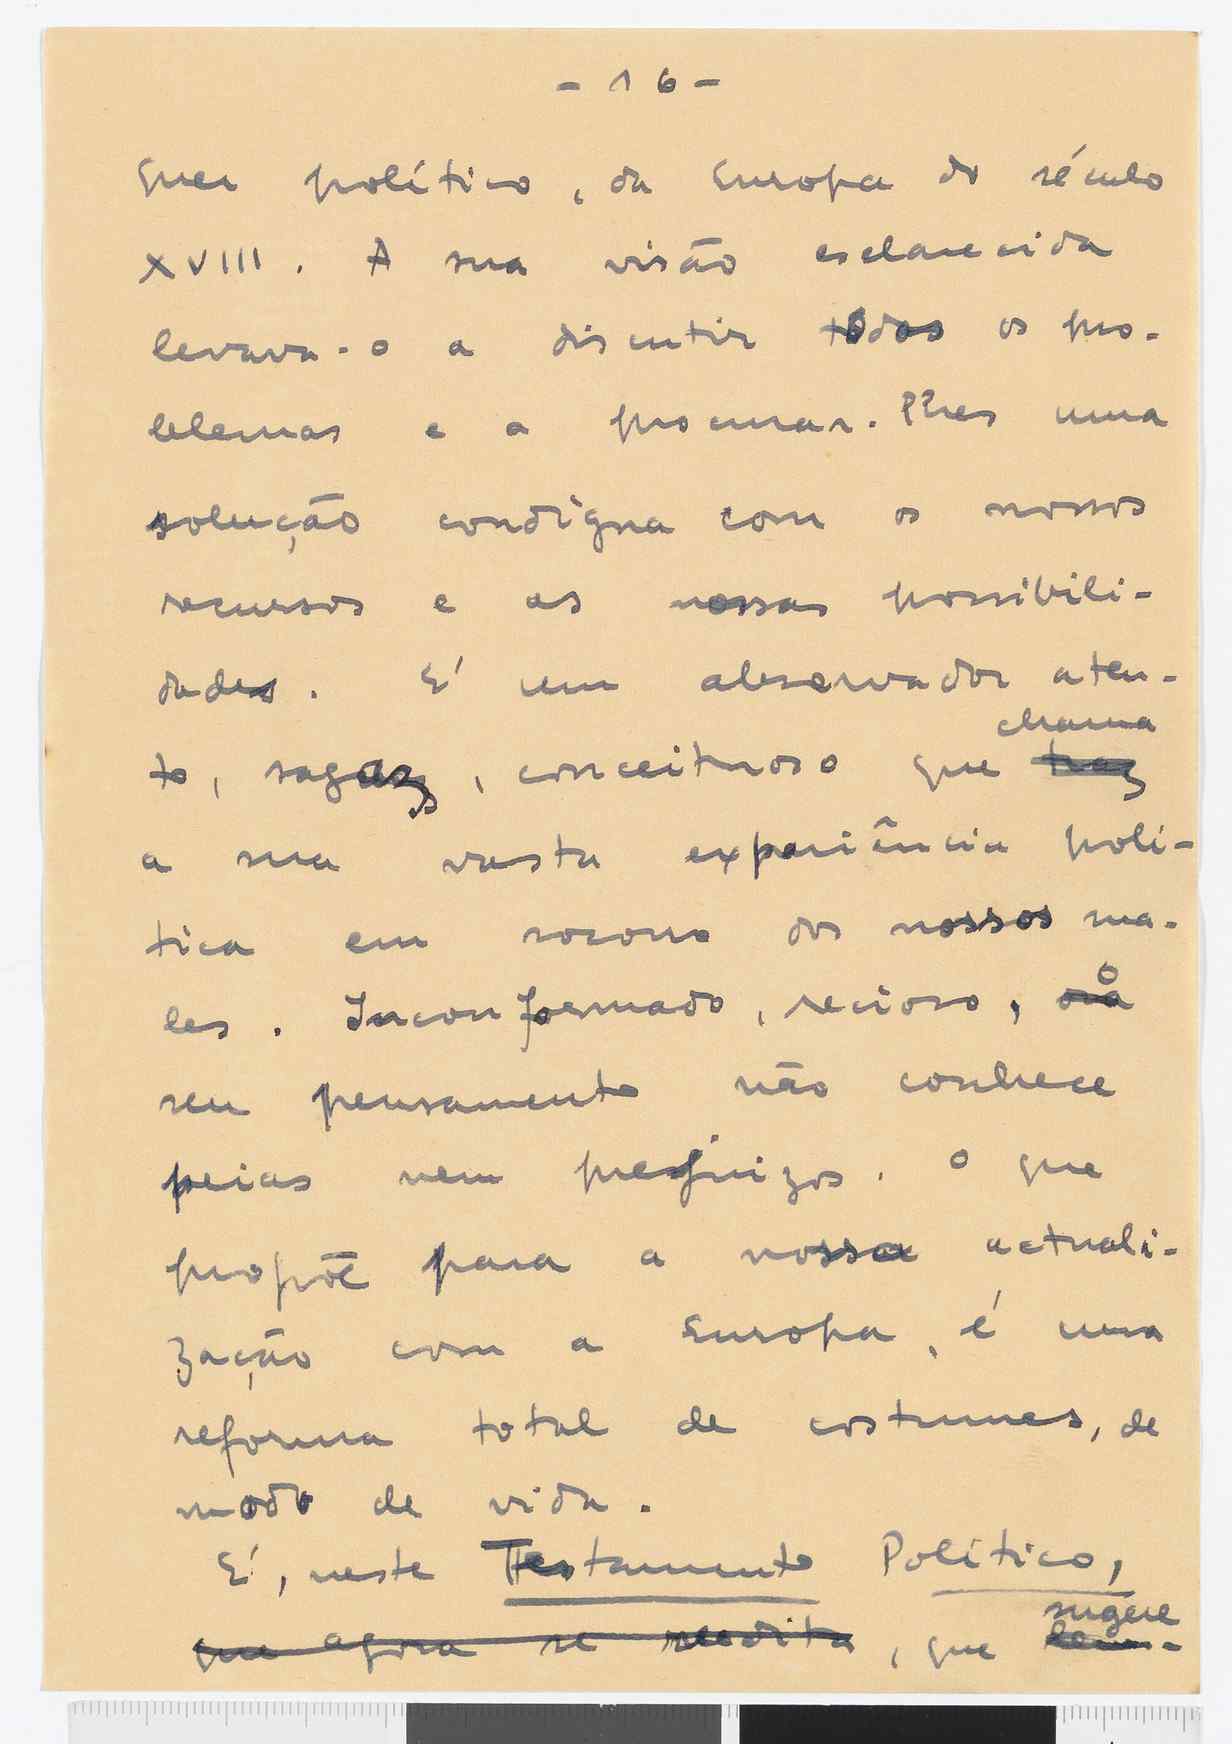 - 16 -
quer político, da Europa do século
XVIII. A sua visão esclarecida
levava-o a discutir todos os pro-
blemas e a procurar-lhes uma
solução condigna com os nossos
recursos e as nossas possibili-
dades. É um observador aten-
to, sagaz, conceituoso que traz chama
a sua vasta experiência polí-
tica em socorro dos nossos ma-
les. Inconformado, recioso, o
seu pensamento não conhece
peias nem prejuizos. O que
propõe para a nossa actuali-
zação com a Europa, é uma
reforma total de costumes, de
modo de vida.
É, neste Testamento Político,
que agora se reedita, que sugere